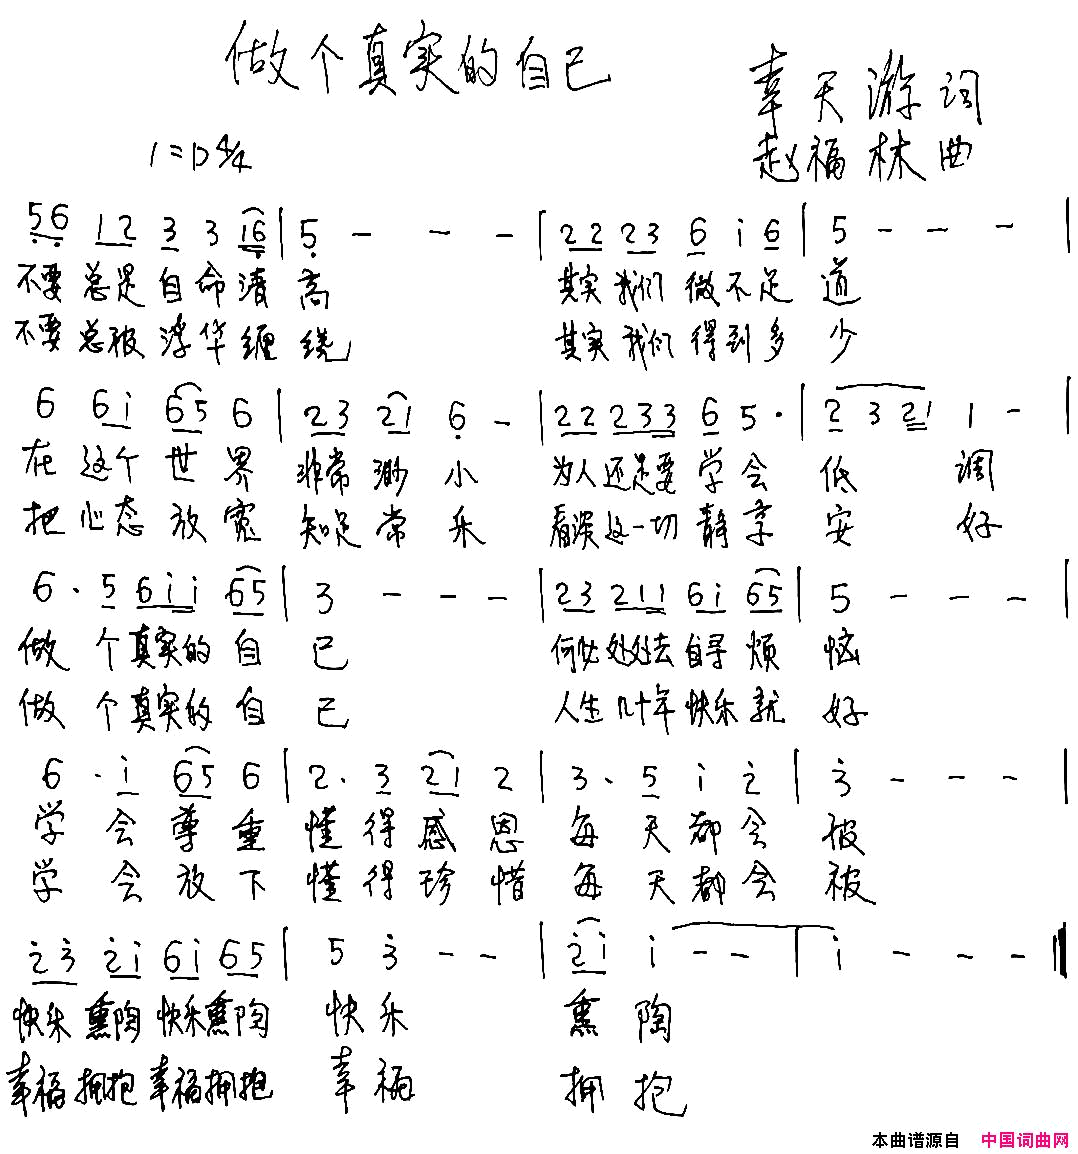 做个真实的自己
幸天游词
1=D 4/4
赵福林曲
56 12 3 3 i6 | 5 - - - | 22 23 6 i 6 | 5 - - - |
不要总是自命清高 其实我们微不足道
不要总被浮华缠绕 其实我们得到多少
6 6i 65 6 | 23 21 6 - | 22 233 6 5· | 2 3 21 1 - |
在这个世界 非常渺小 为人还是要学会低调
把心态放宽 知足常乐 看淡这一切静享安好
6· 5 6ii 65 | 3 - - - | 23 211 6i 65 | 5 - - - |
做个真实的自己 何必处处去自寻烦恼
做个真实的自己 人生几十年快乐就好
6· i 65 6 | 2· 3 21 2 | 3· 5 i 2 | 3 - - - |
学会尊重 懂得感恩 每天都会被
学会放下 懂得珍惜 每天都会被
23 2i 6i 65 | 5 3 - - | 2i i - - | i - - - ‖
快乐熏陶快乐熏陶 快乐 熏陶
幸福拥抱幸福拥抱 幸福 拥抱
本曲谱源自 中国词曲网